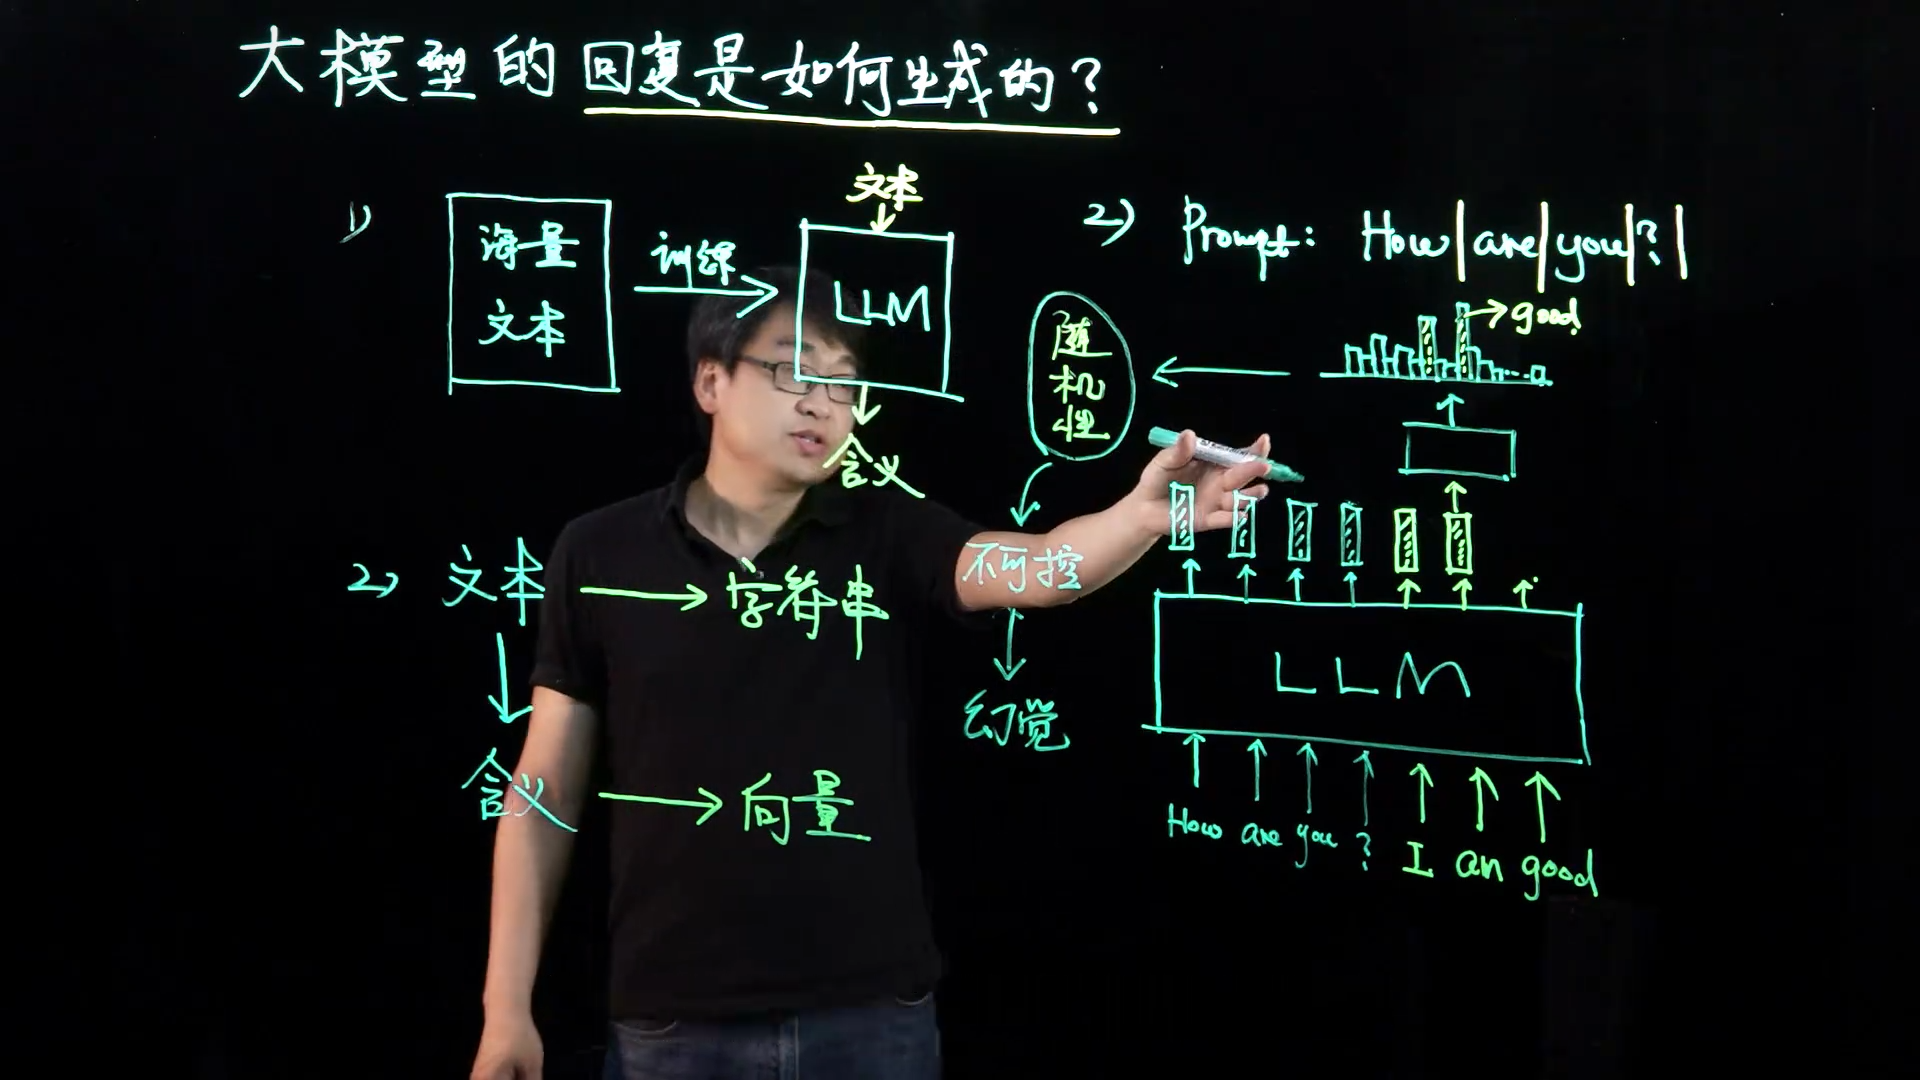 大模型的回复是如何生成的?
1)
海量
文本
训练
文本
LLM
含义
2) 文本
字符串
含义
向量
2) Prompt: How|are|you|?|
good
随
机
性
不可控
幻觉
LLM
How are you ? I am good